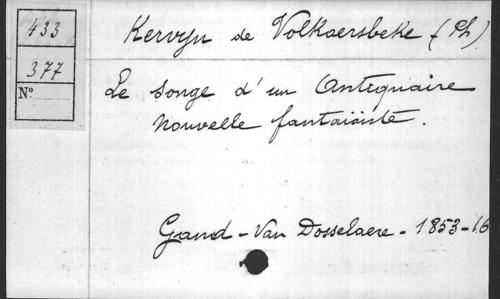 433
377
N°
Kervyn de Volkaersbeke (Ph)
Le songe d'un Antiquaire
nouvelle fantaisiste.
Gand - Van Dosselaere - 1853 - 16